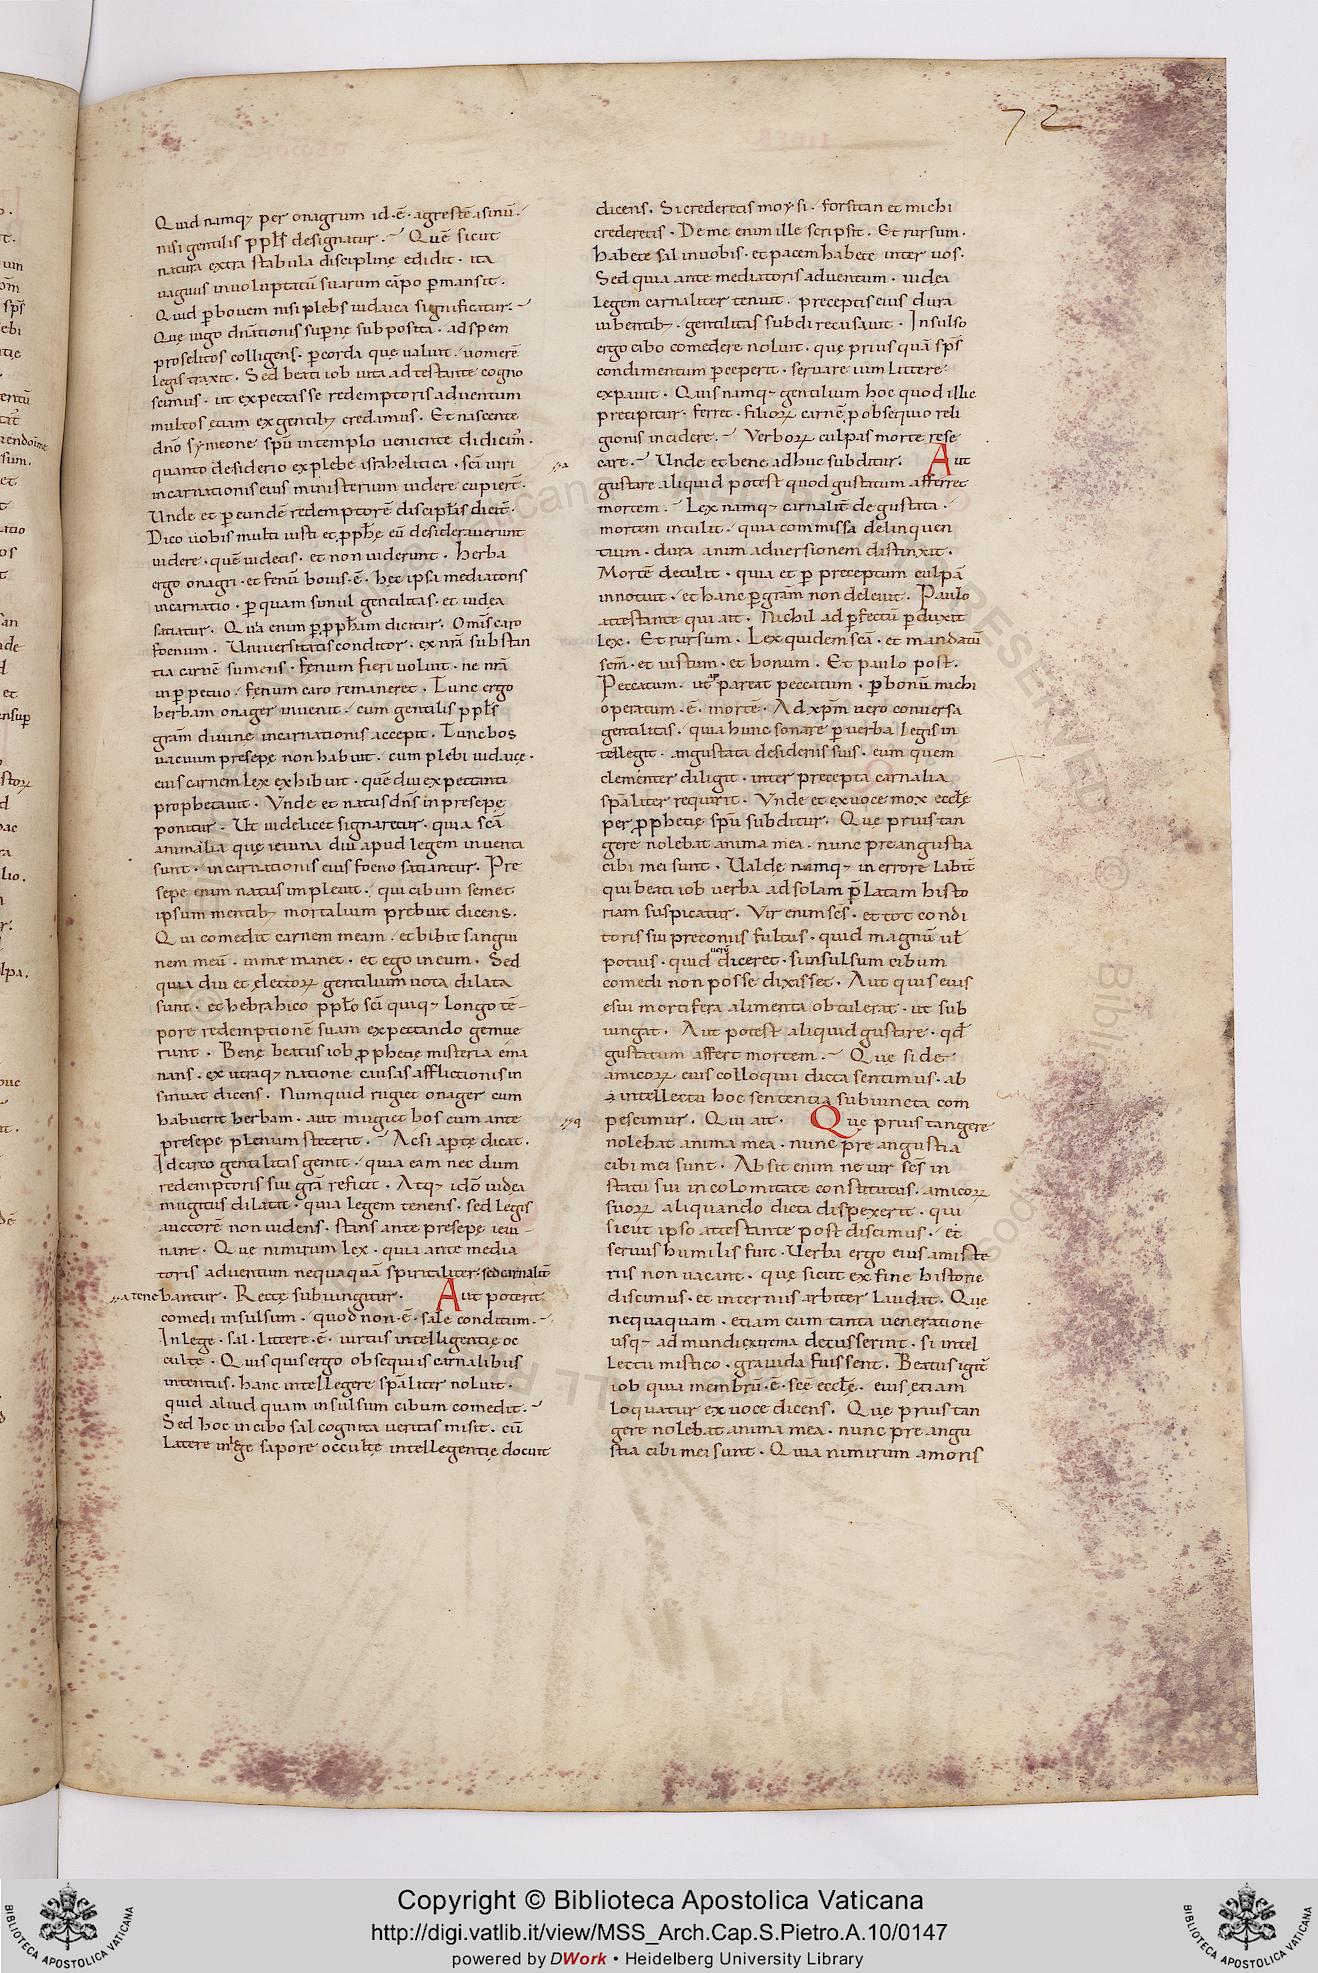 72
Quid namq; per onagrum id·ē· agrestē asinū·
nisi gentilis ppl̄s designatur· Quē sicut
natura extra stabula disciplinę edidit· ita
uagus inuoluptatū suarum cāpo p̄mansit·
Quid p̄ bouem nisi plebs iudaica significatur·
Quę iugo dn̄ationis sup̄nę subposita· ad spem
proselitos colligens· p̄ corda quę ualuit· uomerē
legis traxit· Sed beati iob uita adtestante cogno
scimus· ut expectasse redemptoris aduentum
multos etiam ex gentilib; credamus· Et nascente
dn̄o symeone sp̄u in templo ueniente didicim̄·
quanto desiderio ex plebe israhelitica· sc̄i uiri
incarnationis eius ministerium uidere cupier̄·
Unde et p̄ eundē redemptorē discipl̄is dicit̄·
Dico uobis multi iusti et p̄ph̄ę eū desiderauerunt
uidere· quē uidetis· et non uiderunt· Herba
ergo onagri· et fenū bouis·ē· hęc ipsa mediatoris
incarnatio· p̄ quam simul gentilitas· et iudea
satiatur· Quia enim p̄ p̄ph̄am dicitur· Omīs caro
foenum· Uniuersitatis conditor· ex nr̄a substan
tia carnē sumens· fęnum fieri uoluit· ne nr̄a
in p̄petuo· fęnum caro remaneret· Tunc ergo
herbam onager inuenit· cum gentilis ppl̄s
gram̄ diuine incarnationis accepit· Tunc bos
uacuum presepe non habuit· cum plebi iudaicę·
eius carnem lex exhibuit· quē diu expectanti
prophetauit· Unde et natus dn̄s in presepę
ponitur· Ut uidelicet signaretur· quia sc̄a
animalia quę ieiuna diu apud legem inuenta
sunt· incarnationis eius foeno satiantur· Pre
sepe enim natus impleuit· qui cibum semet
ipsum mentib; mortalium prebuit dicens·
Qui comedit carnem meam· et bibit sangui
nem meū· in me manet· et ego in eum· Sed
quia diu et electorꝝ gentilium uota dilata
sunt· et hebrahico ppl̄o sc̄i quiq; longo tē
pore redemptionē suam expectando gemue
runt· Bene beatus iob p̄phetię misteria ema
nans· ex utraq; natione causas afflictionis in
sinuat dicens· Numquid rugiet onager cum
habuerit herbam· aut mugiet bos cum ante
presepe plenum steterit· Acsi ap̄te dicat·
Idcirco gentilitas gemit· quia eam nec dum
redemptoris sui grā reficit· Atq; idō iudea
mugitus dilatat· quia legem tenens· sed legis
auctorē non uidens· stans ante presepe ieiu
nant· Quę nimirum lex· quia ante media
toris aduentum nequaquā spiritaliter· sed carnalit̄
tenebantur· Recte subiungitur· Aut poterit
comedi insulsum· quod non·ē· sale conditum·
In lege· sal· littere·ē· uirtus intelligentię oc
culte· Quisquis ergo obsequiis carnalibus
intentus· hanc intellegere sp̄aliter noluit·
quid aliud quam insulsum cibum comedit·
Sed hoc in cibo sal cognita ueritas misit· cū
latere in lege sapore occultę intellegentię docuit
dicens· Si crederetis moysi· forsitan et michi
crederetis· De me enim ille scripsit· Et rursum·
habete sal in uobis· et pacem habete inter uos·
Sed quia ante mediatoris aduentum· iudea
legem carnaliter tenuit· preceptis eius dura
iubentib;· gentilitas subdi recusauit· Insulso
ergo cibo comedere noluit· quę prius quā sp̄s
condimentum p̄ceperit· seruare uim littere·
expauit· Quis namq; gentilium hoc quod illic
precipitur· ferret· filiorꝝ carnē p̄ obsequio reli
gionis incidere· Verborꝝ culpas morte rese
care· Unde et bene adhuc subditur· Aut
gustare aliquid potest quod gustatum afferret
mortem· Lex namq; carnalit̄ degustata·
mortem intulit· quia commissa delinquen
tium· dura animaduersionem distinxit·
Mortē detulit· quia et p̄ preceptum culpā
innotuit· et hanc p̄ gram̄ non deleuit· Paulo
attestante qui ait· Nichil ad p̄fectū p̄duxit
lex· Et rursum· Lex quidem sc̄a· et mandatū
sc̄m· et iustum· et bonum· Et paulo post·
Peccatum· ut appareat peccatum· p̄ bonū michi
operatum·ē· mortē· Ad xp̄m uero conuersa
gentilitas· quia hunc sonare p̄ uerba legis in
tellegit· angustata desideriis suis· eum quem
clementer diligit· inter precepta carnalia
sp̄aliter requirit· Unde et ex uoce mox eccl̄ę
per p̄phetię sp̄u subditur· Quę prius tan
gere nolebat anima mea· nunc pre angustia
cibi mei sunt· Ualde namq; in errore labit̄
qui beati iob uerba ad solam p̄latam histo
riam suspicatur· Vir enim sc̄s· et tot condi
toris sui preconiis fultus· quid magnū ut̄
potius· quid uerū diceret· si insulsum cibum
comedi non posse dixisset· Aut quis eius
esui mortifera alimenta obtulerat· ut sub
iungat· Aut potest aliquid gustare· qd̄
gustatum affert mortem· Que si de
amicorꝝ eius colloquii dicta sentimus· ab
a intellectu hoc sententia subiuncta com
pescimur· Qui ait· Quę prius tangere
nolebat anima mea· nunc pre angustia
cibi mei sunt· Absit enim ne uir sc̄s in
statu sui incolomitate constitutus· amicorꝝ
suorꝝ aliquando dicta dispexerit· qui
sicut ipso attestante post discimus· et
seruis humilis fuit· Uerba ergo eius a miste
riis non uacant· quę sicut ex fine historie
discimus· et internus arbiter laudat· Que
nequaquam· etiam cum tanta ueneratione
usq; ad mundi extrema decusserint· si intel
lectu mistico· grauida fuissent· Beatus igit̄
iob quia membrū·ē· sc̄e eccl̄ę· eius etiam
loquatur ex uoce dicens· Quę prius tan
gere nolebat anima mea· nunc pre angu
stia cibi mei sunt· Quia nimirum amoris
Copyright © Biblioteca Apostolica Vaticana
http://digi.vatlib.it/view/MSS_Arch.Cap.S.Pietro.A.10/0147
powered by DWork • Heidelberg University Library
BIBLIOTECA APOSTOLICA VATICANA
BIBLIOTECA APOSTOLICA VATICANA